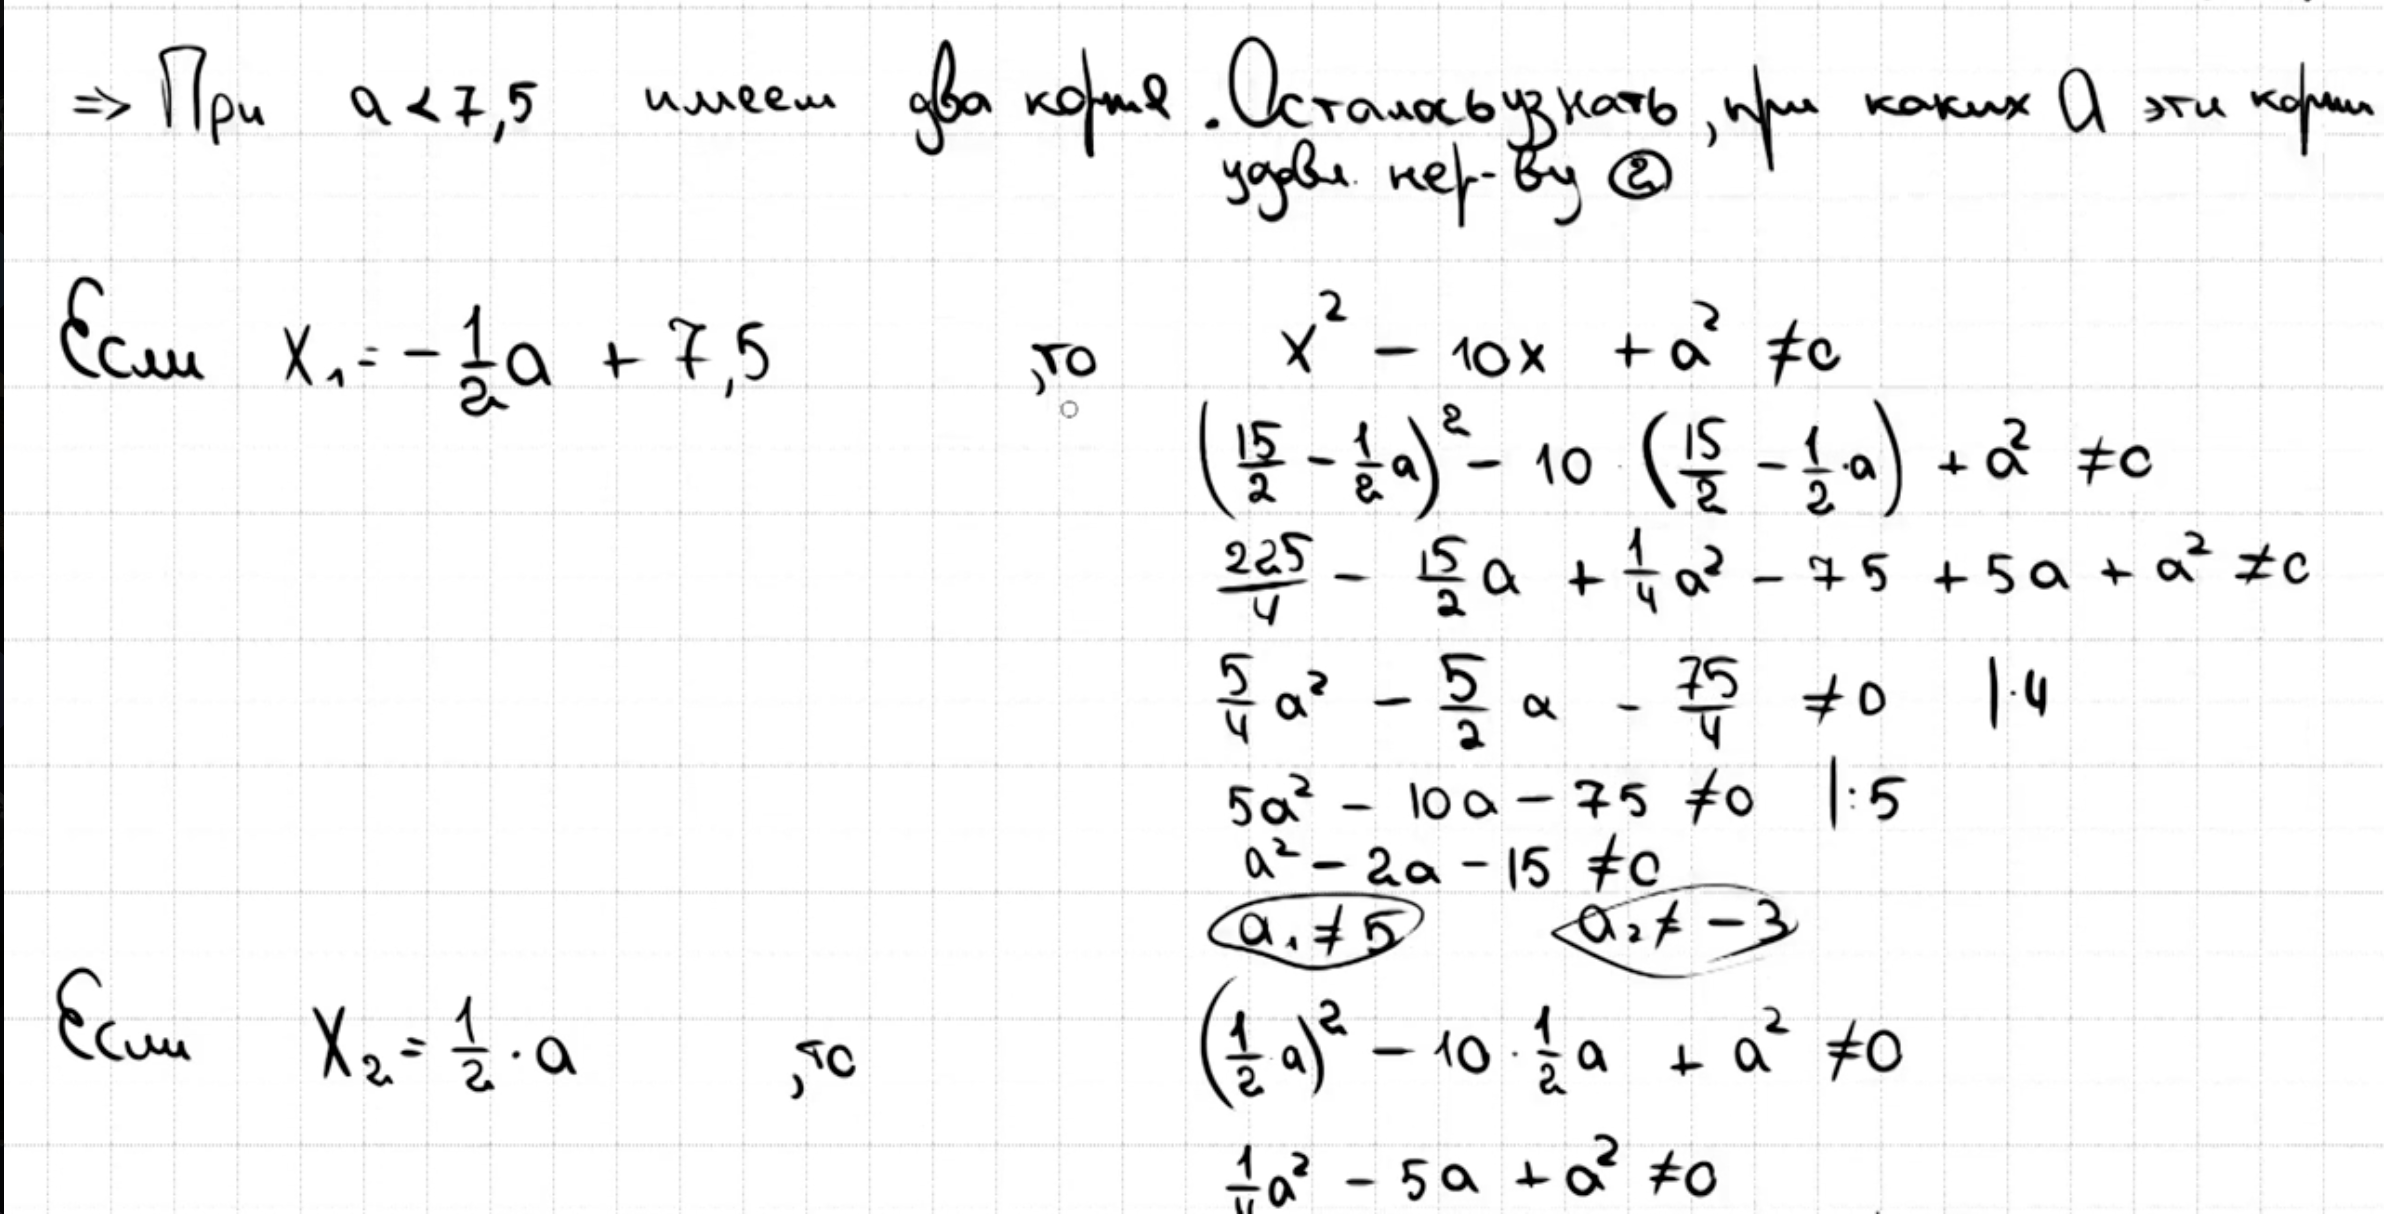 => При a < 7,5 имеем два корня. Осталось узнать, при каких a эти корни
удовл. нер-ву ②
Если x₁ = -1/2 a + 7,5 ,то x² - 10x + a² ≠ 0
(15/2 - 1/2 a)² - 10 · (15/2 - 1/2 · a) + a² ≠ 0
225/4 - 15/2 a + 1/4 a² - 75 + 5a + a² ≠ 0
5/4 a² - 5/2 a - 75/4 ≠ 0 |·4
5a² - 10a - 75 ≠ 0 |:5
a² - 2a - 15 ≠ 0
a₁ ≠ 5 a₂ ≠ -3
Если x₂ = 1/2 · a ,то (1/2 · a)² - 10 · 1/2 a + a² ≠ 0
1/4 a² - 5a + a² ≠ 0